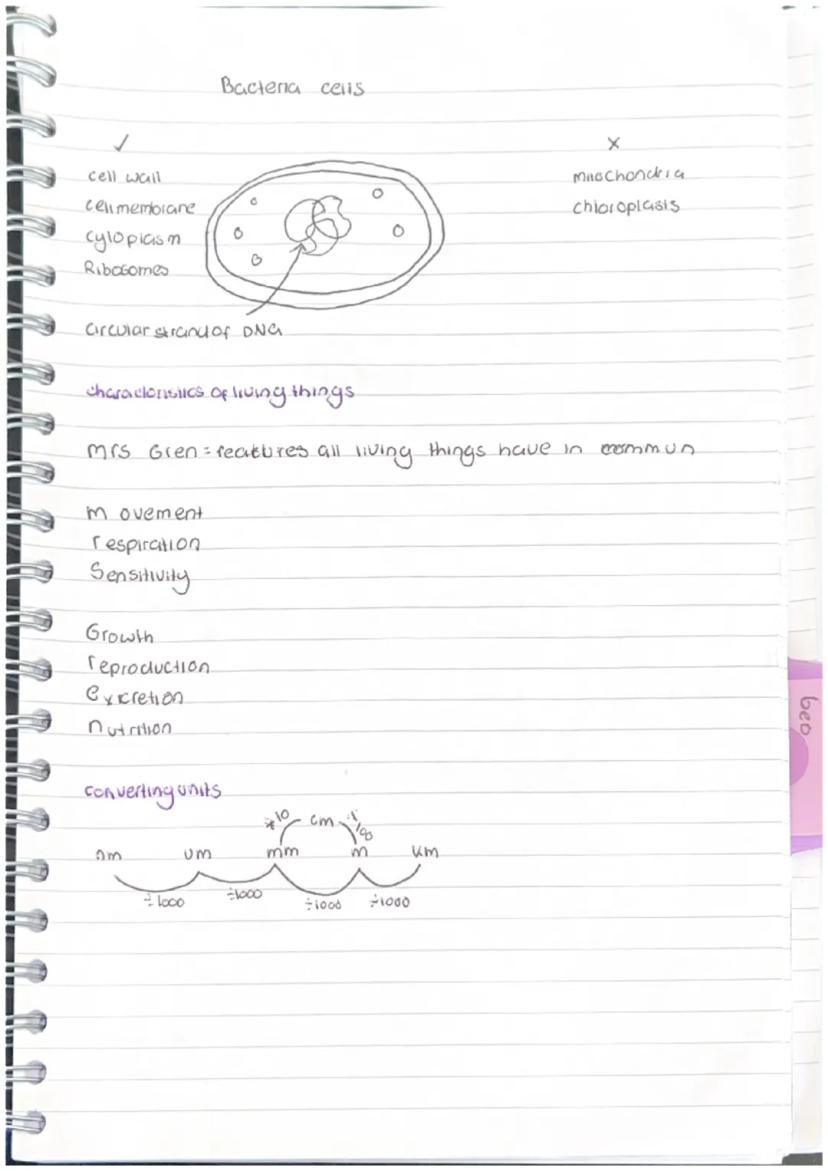 Bacteria cells
✓ x
cell wall mitochondria
cell membrane chloroplasts
cytoplasm
Ribosomes
circular strand of DNA
characteristics of living things
Mrs Gren = features all living things have in commun
m ovement
respiration
Sensitivity
Growth
reproduction
excretion
nutrition
converting units
÷10 cm ÷100
nm um mm m km
÷1000 ÷1000 ÷1000 ÷1000
geo